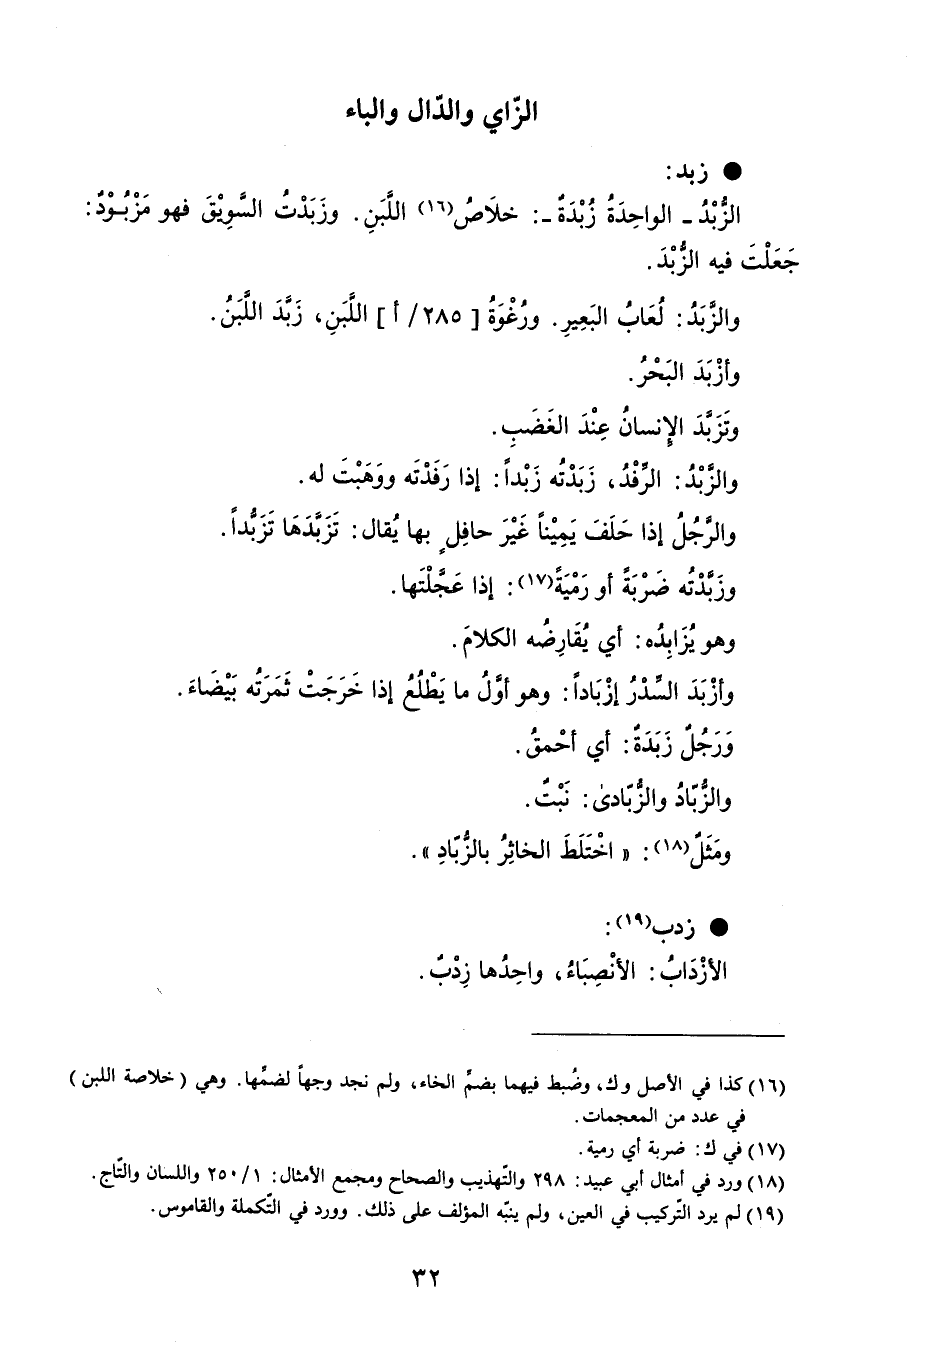 الزّاي والدّال والباء
● زبد:
الزُّبْدُ ـ الواحِدَةُ زُبْدَةٌ ـ: خلَاصُ(١٦) اللَّبَنِ. وزَبَدْتُ السَّوِيْقَ فهو مَزْبُوْدٌ:
جَعَلْتَ فيه الزُّبْدَ.
والزَّبَدُ: لُعَابُ البَعِيرِ. ورُغْوَةُ [ ٢٨٥/ أ ] اللَّبَنِ، زَبَّدَ اللَّبَنُ.
وأزْبَدَ البَحْرُ.
وتَزَبَّدَ الإِنسانُ عِنْدَ الغَضَبِ.
والزَّبْدُ: الرِّفْدُ، زَبَدْتُه زَبْداً: إذا رَفَدْتَه ووَهَبْتَ له.
والرَّجُلُ إذا حَلَفَ يَمِيْناً غَيْرَ حافِلٍ بها يُقال: تَزَبَّدَهَا تَزَبُّداً.
وزَبَّدْتُه ضَرْبَةً أو رَمْيَةً(١٧): إذا عَجَّلْتَها.
وهو يُزَابِدُه: أي يُقَارِضُه الكلامَ.
وأزْبَدَ السِّدْرُ إزْبَاداً: وهو أوَّلُ ما يَطْلُعُ إذا خَرَجَتْ ثَمَرَتُه بَيْضَاءَ.
وَرَجُلٌ زَبَدَةٌ: أي أحْمقُ.
والزُّبّادُ والزُّبّادىٰ: نَبْتٌ.
ومَثَلٌ(١٨): « اخْتَلَطَ الخاثِرُ بالزُّبّادِ ».
● زدب(١٩):
الأزْدَابُ: الأنْصِبَاءُ، واحِدُها زِدْبٌ.
(١٦) كذا في الأصل وك، وضُبط فيهما بضمِّ الخاء، ولم نجد وجهاً لضمِّها. وهي ( خلاصة اللبن )
في عدد من المعجمات.
(١٧) في ك: ضربة أي رمية.
(١٨) ورد في أمثال أبي عبيد: ٢٩٨ والتّهذيب والصحاح ومجمع الأمثال: ٢٥٠/١ واللسان والتّاج.
(١٩) لم يرد التّركيب في العين، ولم ينبّه المؤلف على ذلك. وورد في التّكملة والقاموس.
٣٢